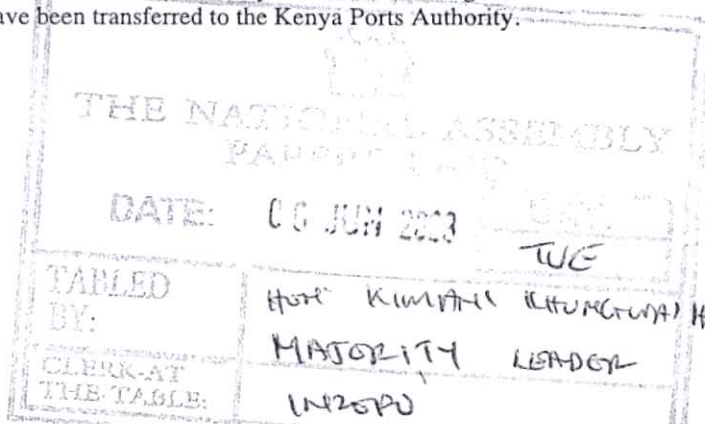 ve been transferred to the Kenya Ports Authority.
THE NATIONAL ASSEMBLY
PAPERS LAID
DATE: 06 JUN 2023
DAY
TUE
TABLED
BY:
HON KIMANI ICHUNG'WAH
MAJORITY LEADER
CLERK-AT
THE-TABLE:
INZOFU